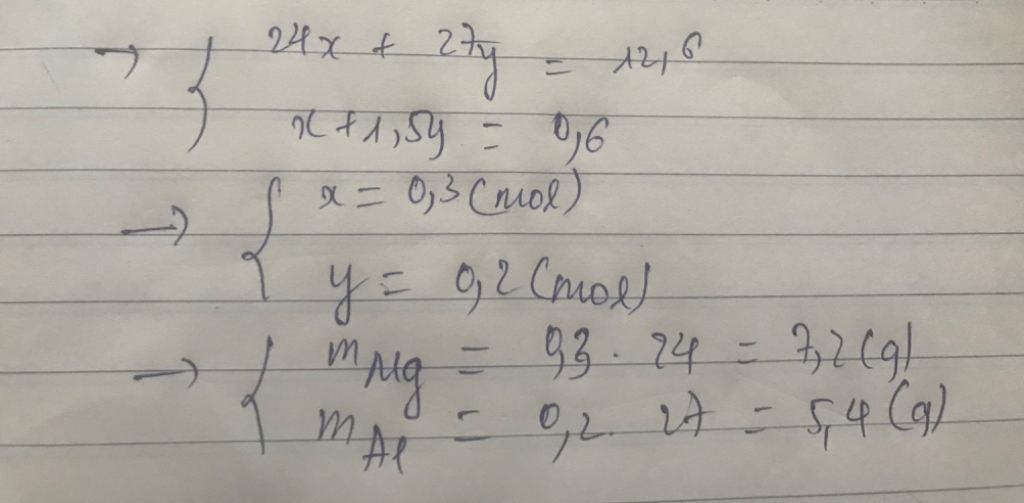 → { 24x + 27y = 12,6
x + 1,5y = 0,6
→ { x = 0,3 (mol)
y = 0,2 (mol)
→ { mMg = 0,3 . 24 = 7,2 (g)
mAl = 0,2 . 27 = 5,4 (g)